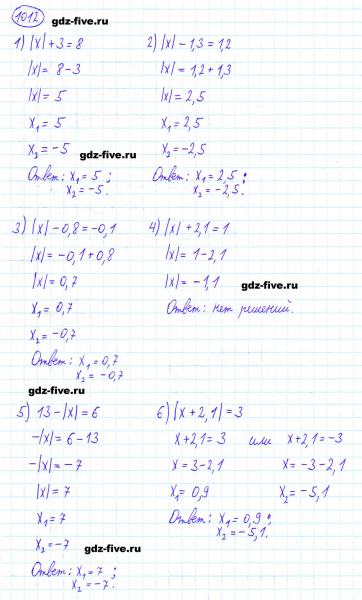 1012 gdz-five.ru
1) |x| + 3 = 8
|x| = 8 - 3
|x| = 5
x₁ = 5
x₂ = -5
gdz-five.ru
Ответ: x₁ = 5 ;
x₂ = -5.
2) |x| - 1,3 = 1,2
|x| = 1,2 + 1,3
|x| = 2,5
x₁ = 2,5
x₂ = -2,5
Ответ: x₁ = 2,5 ;
x₂ = -2,5.
3) |x| - 0,8 = -0,1
|x| = -0,1 + 0,8
|x| = 0,7
x₁ = 0,7
x₂ = -0,7
Ответ: x₁ = 0,7
x₂ = -0,7
gdz-five.ru
4) |x| + 2,1 = 1
|x| = 1 - 2,1
|x| = -1,1
gdz-five.ru
Ответ: нет решений.
5) 13 - |x| = 6
-|x| = 6 - 13
-|x| = -7
|x| = 7
x₁ = 7
x₂ = -7
gdz-five.ru
Ответ: x₁ = 7 ;
x₂ = -7.
6) |x + 2,1| = 3
x + 2,1 = 3 или x + 2,1 = -3
x = 3 - 2,1 x = -3 - 2,1
x₁ = 0,9 x₂ = -5,1
Ответ: x₁ = 0,9 ;
x₂ = -5,1.